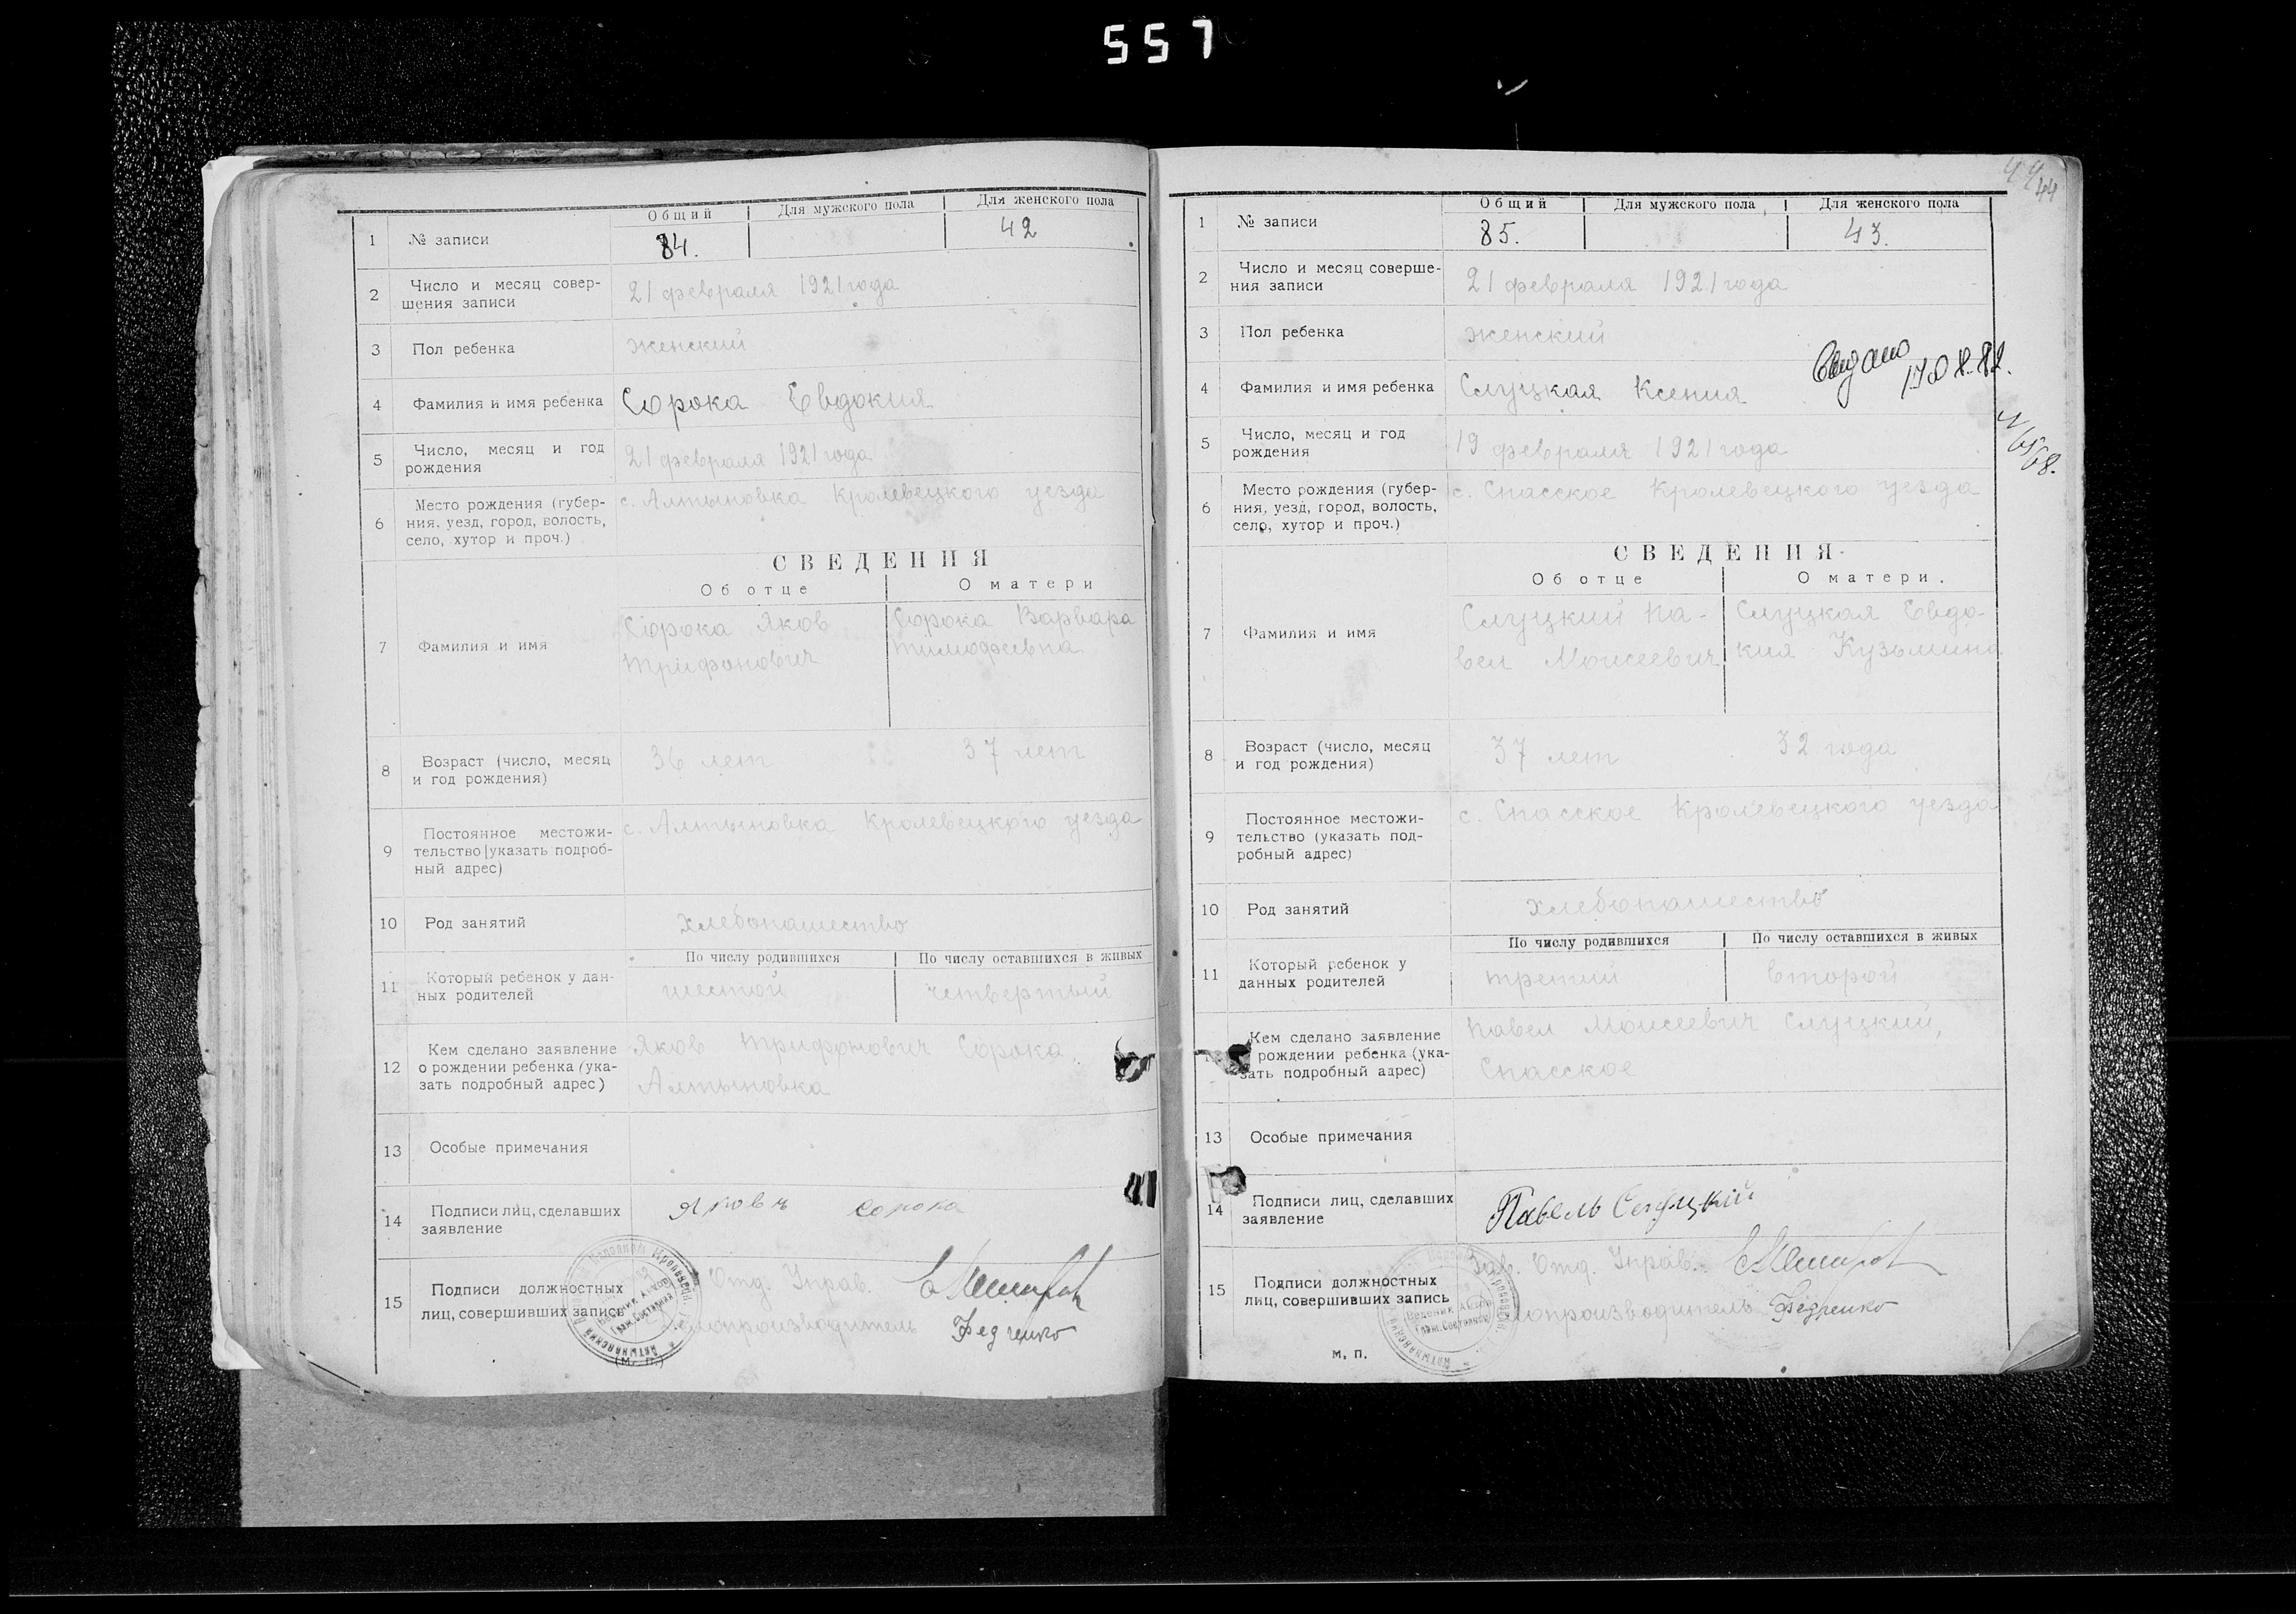 557
Общий Для мужского пола Для женского пола
1 № записи 84. 42
2 Число и месяц совер-
шения записи 21 февраля 1921 года
3 Пол ребенка женский
4 Фамилия и имя ребенка Сорока Евдокия
5 Число, месяц и год
рождения 21 февраля 1921 года
6 Место рождения (губер-
ния, уезд, город, волость,
село, хутор и проч.) с. Алтыновка Кролевецкого уезда
СВЕДЕНИЯ
Об отце О матери
7 Фамилия и имя
Сорока Яков Сорока Варвара
Трифонович Тимофеевна
8 Возраст (число, месяц
и год рождения) 36 лет 37 лет
9 Постоянное местожи-
тельство (указать подроб-
ный адрес) с. Алтыновка Кролевецкого уезда
10 Род занятий хлебопашество
По числу родившихся По числу оставшихся в живых
11 Который ребенок у дан-
ных родителей шестой четвертый
12 Кем сделано заявление
о рождении ребенка (ука-
зать подробный адрес)
Яков Трифонович Сорока,
Алтыновка
13 Особые примечания
14 Подписи лиц, сделавших
заявление Яковъ Сорока
15 Подписи должностных
лиц, совершивших запись
Отд. Управ.
Федченко
(м. п.)
44
Общий Для мужского пола Для женского пола
1 № записи 85. 43.
2 Число и месяц соверше-
ния записи 21 февраля 1921 года
3 Пол ребенка женский
4 Фамилия и имя ребенка Слуцкая Ксения
5 Число, месяц и год
рождения 19 февраля 1921 года
6 Место рождения (губер-
ния, уезд, город, волость,
село, хутор и проч.) с. Спасское Кролевецкого уезда
СВЕДЕНИЯ
Об отце О матери.
7 Фамилия и имя
Слуцкий Па- Слуцкая Евдо-
вел Моисеевич кия Кузьмина
8 Возраст (число, месяц
и год рождения) 37 лет 32 года
9 Постоянное местожи-
тельство (указать под-
робный адрес) с. Спасское Кролевецкого уезда
10 Род занятий хлебопашество
По числу родившихся По числу оставшихся в живых
11 Который ребенок у
данных родителей третий второй
Кем сделано заявление
рождении ребенка (ука-
зать подробный адрес)
Павел Моисеевич Слуцкий,
Спасское
13 Особые примечания
14 Подписи лиц, сделавших
заявление Павелъ Слуцкій
15 Подписи должностных
лиц, совершивших запись
Зав. Отд. Управ.
Федченко
м. п.